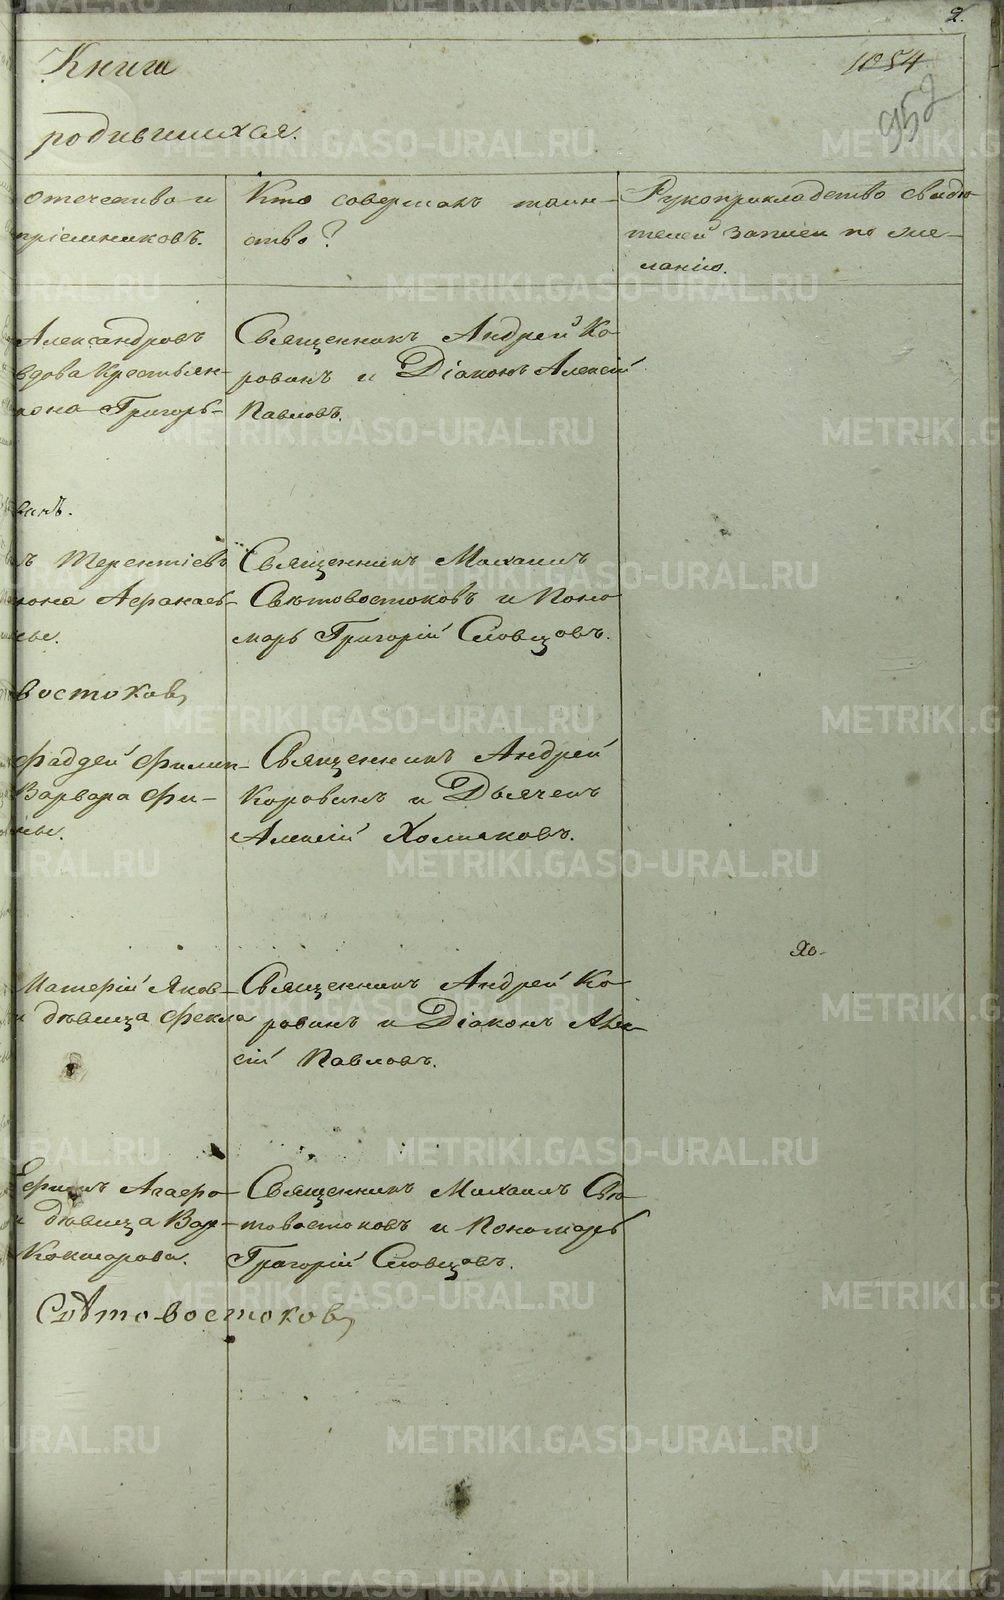 2.
Книга
1054
952
родившихся.
отечество и
пріемниковъ.
Кто совершалъ таин-
ство?
Рукоприкладство свидѣ
телей записи по же-
ланію.
Александровъ
вдова Крестьян-
Григорь-
Священникъ Андрей Ко
ровинъ и Діаконъ Алексій
Павловъ.
Терентіевъ
Афанась-
Священникъ Михаилъ
Свѣтовостоковъ и Поно
марь Григорій Словцовъ.
востоковъ
Фаддей Филип-
Варвара Фи-
Священникъ Андрей
Коровинъ и Дьячекъ
Алексій Холмаковъ.
Хо-
Матерій Яков-
и дѣвица Фекла
Священникъ Андрей Ко
ровинъ и Діаконъ Алек
сій Павловъ.
Ефимъ Агафо-
и дѣвица Вар-
Кокшарова.
Священникъ Михаилъ Свѣ
товостоковъ и Пономарь
Григорій Словцовъ.
Свѣтовостоковъ
METRIKI.GASO-URAL.RU